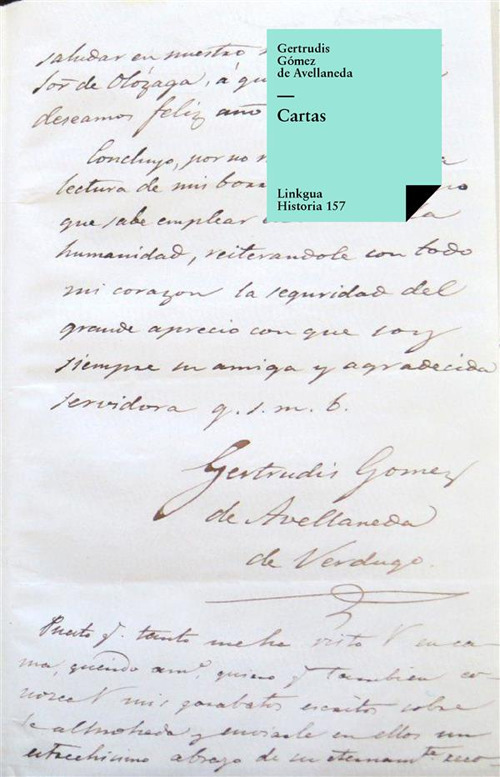 saludar en nuestro
Sor. de Olózaga, á qu
deseamos feliz año
Gertrudis
Gómez
de Avellaneda
—
Cartas
Linkgua
Historia 157
Concluyo, por no
lectura de mis
que sabe emplear la
humanidad, reiterandole con todo
mi corazon la seguridad del
grande aprecio con que soy
siempre su amiga y agradecida
servidora q. s. m. b.
Gertrudis Gomez
de Avellaneda
de Verdugo.
Puesto q. tanto me ha visto V en ca-
ma, querido am.º, quiero q. tambien co-
nozca V mis garabatos escritos sobre
la almohada y enviarle en ellos un
estrechisimo abrazo de su